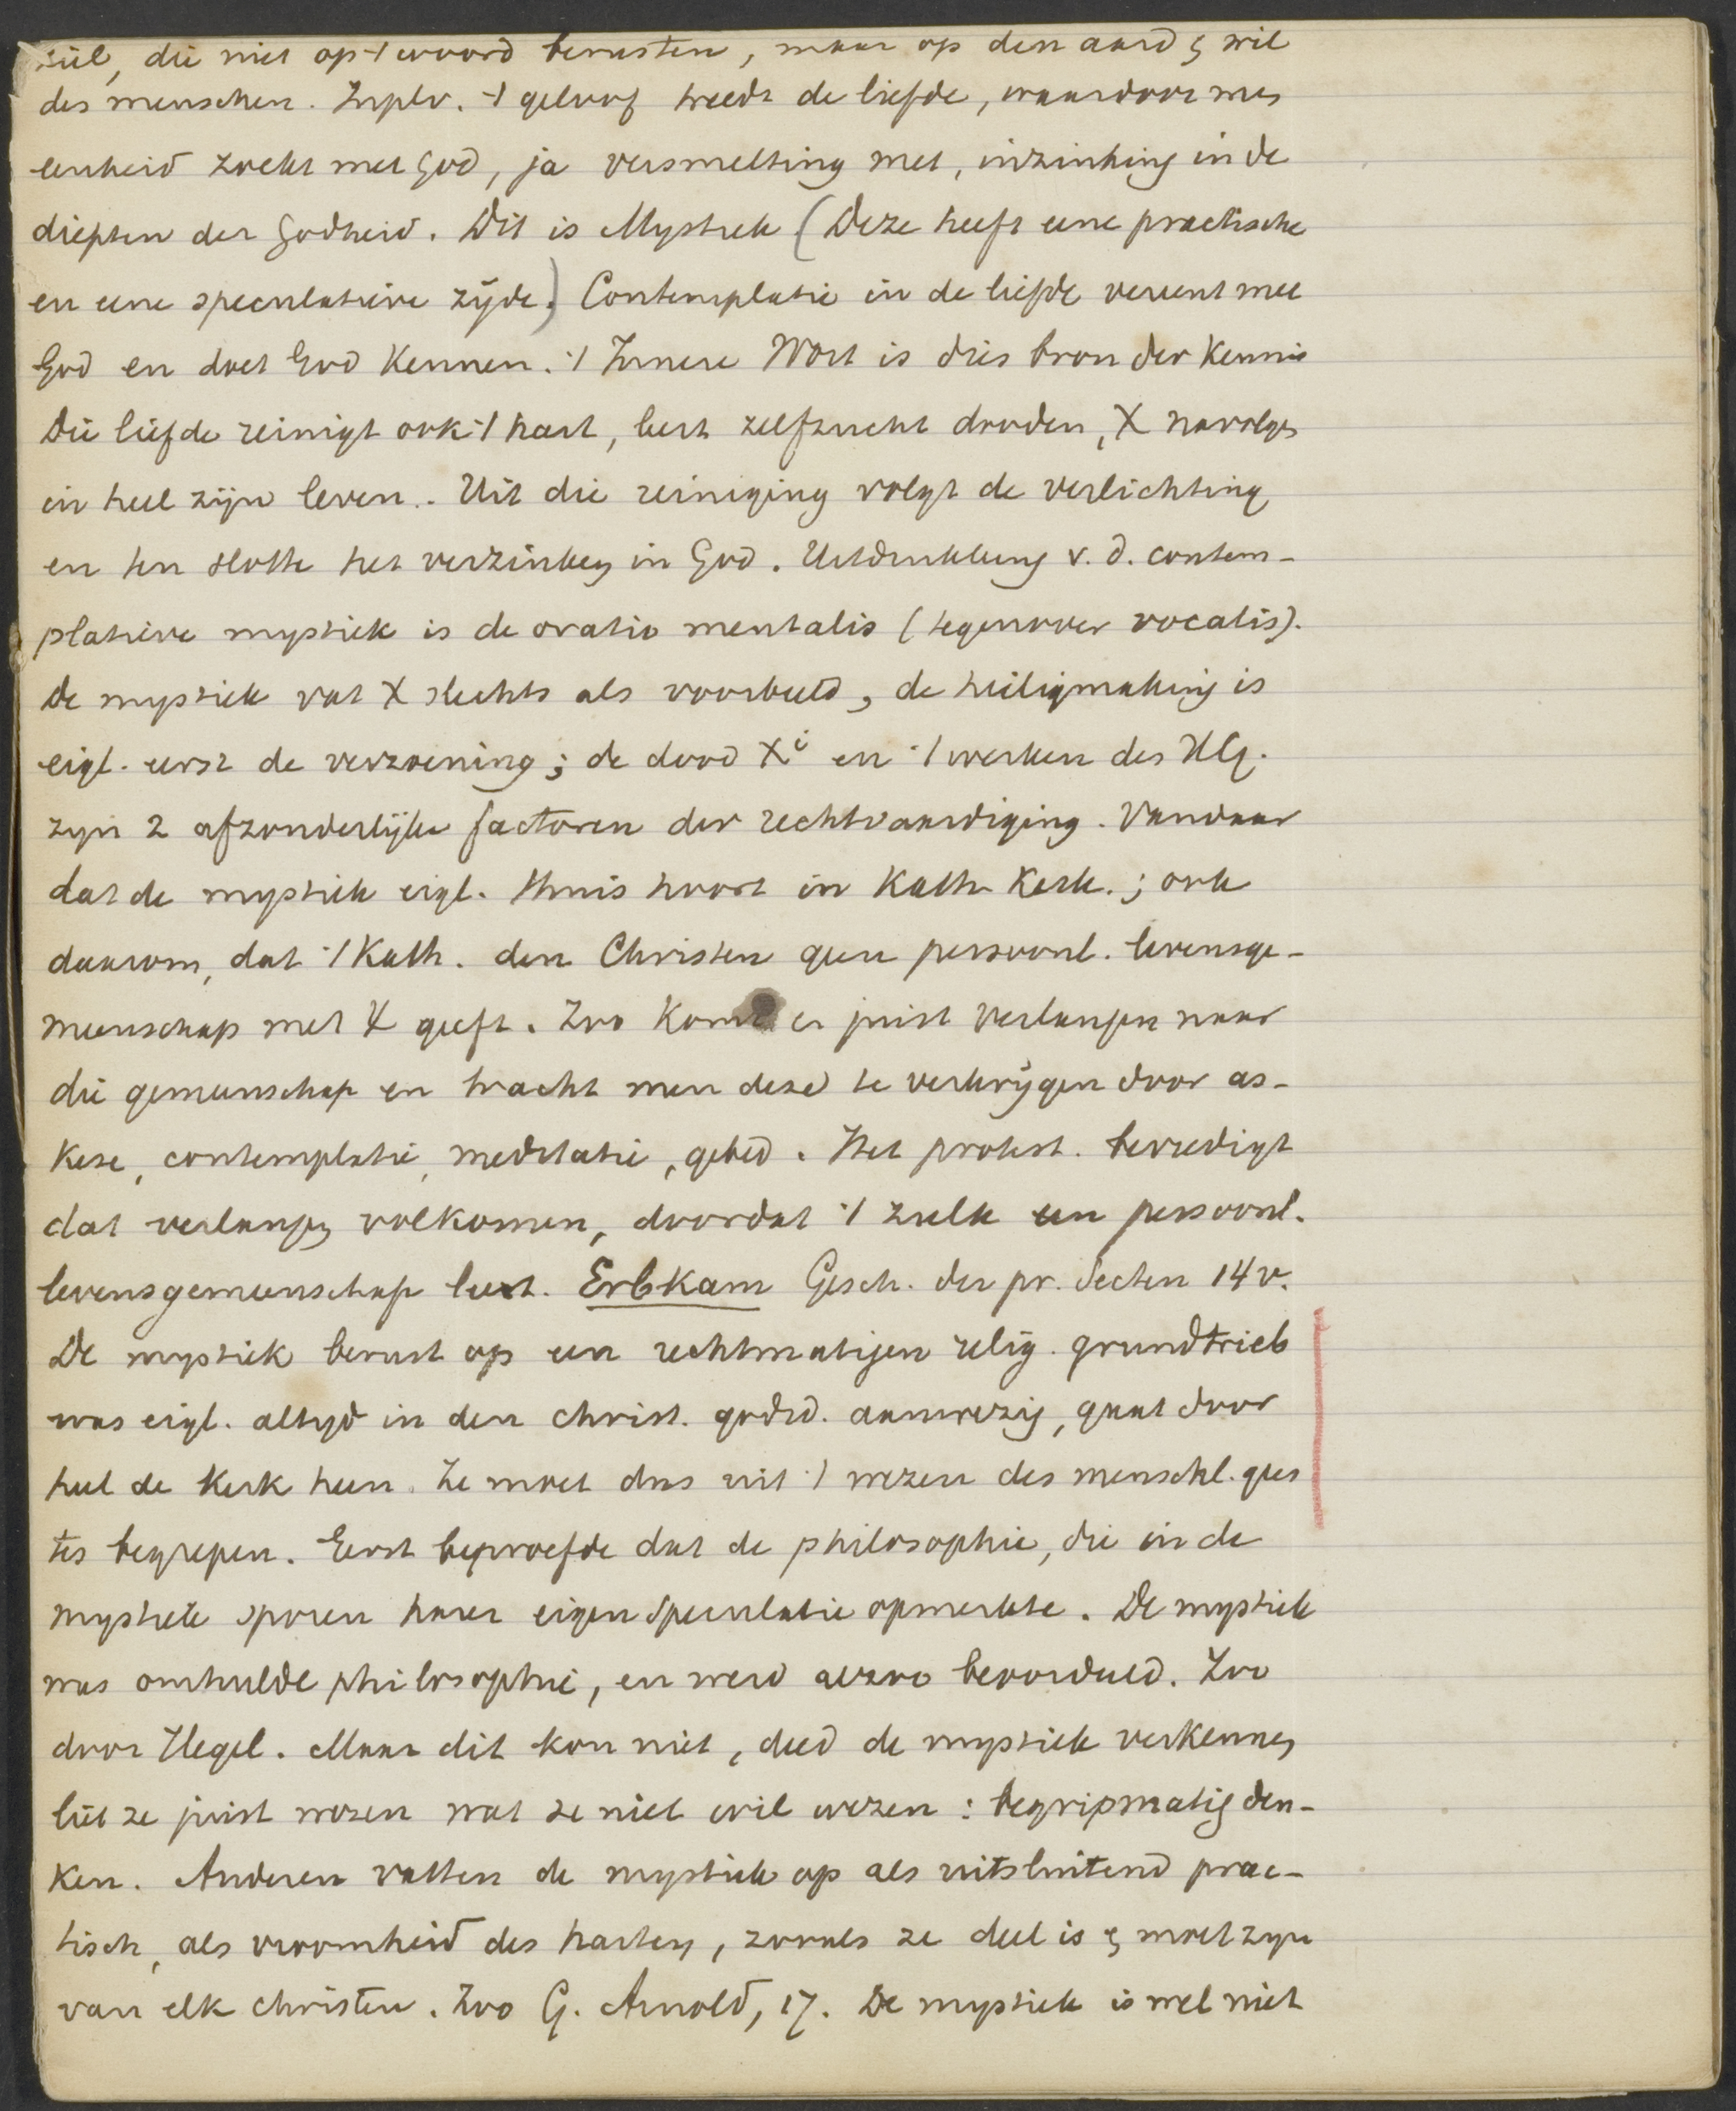 ziel, die niet op 't woord berusten, maar op den aard & wil
des menschen. In plv. 't geloof treedt de liefde, waardoor men
eenheid zoekt met God, ja versmelting met, inzinking in de
diepten der Godheid. Dit is Mystiek (Deze heeft eene practische
en eene speculatieve zijde.) Contemplatie in de liefde vereent met
God en doet God kennen. 't Innere Wort is dies bron der kennis
Die liefde reinigt ook 't hart, leert zelfzucht dooden, X navolgen
in heel zijn leven. Uit die reiniging volgt de verlichting
en ten slotte het verzinken in God. Uitdrukking v. d. contem-
platieve mystiek is de oratio mentalis (tegenover vocalis).
De mystiek vat X slechts als voorbeeld, de heiligmaking is
eigl. eerst de verzoening; de dood Xi en 't werken des HG.
zijn 2 afzonderlijke factoren der rechtvaardiging. Vandaar
dat de mystiek eigl. thuis hoort in Kath Kerk.; ook
daarom, dat 't Kath. den Christen geen persoonl. levensge-
meenschap met X geeft. Zoo komt er juist verlangen naar
die gemeenschap en tracht men deze te verkrijgen door as-
kese, contemplatie, meditatie, gebed. Het protest. bevredigt
dat verlangen volkomen, doordat 't zulk een persoonl.
levensgemeenschap leert. Erbkam Gesch. der pr. Secten 14v.
De mystiek berust op een rechtmatigen relig. grundtrieb
was eigl. altijd in den christ. godsd. aanwezig, gaat door
heel de Kerk heen. Ze moet dus uit 't wezen des menschl. gees
tes begrepen. Eerst beproefde dat de philosophie, die in de
mystiek sporen harer eigen speculatie opmerkte. De mystiek
was omhulde philosophie, en werd alzoo beoordeeld. Zoo
door Hegel. Maar dit kon niet, deed de mystiek verkennen
liet ze juist wezen wat ze niet wil wezen: begripmatig den-
ken. Anderen vatten de mystiek op als uitsluitend prac-
tisch, als vroomheid des harten, zooals ze deel is & moet zijn
van elk christen. Zoo G. Arnold, 17. De mystiek is wel niet